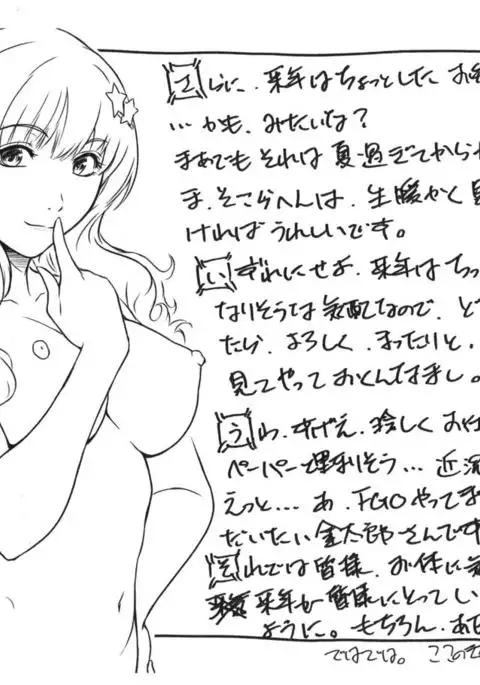 さらに、来年はちょっとした お
…かも、みたいな？
まあでも それは 夏過ぎてからや
ま、そこらへんは、生暖かく見
ければ うれしいです。
いずれにせよ、来年はちょっ
なりそうな気配なので、ど
たら、よろしく、まったりと、
見てやって おくんなまし。
うわ、すげえ、珍しく お仕
ペーパー埋まりそう…近況
えっと…あ、FGO やってま
だいたい 金太郎さんです
それでは 皆様、お体に気
来年が 皆様にとって い
ように。もちろん、あ
ではでは。ここのき